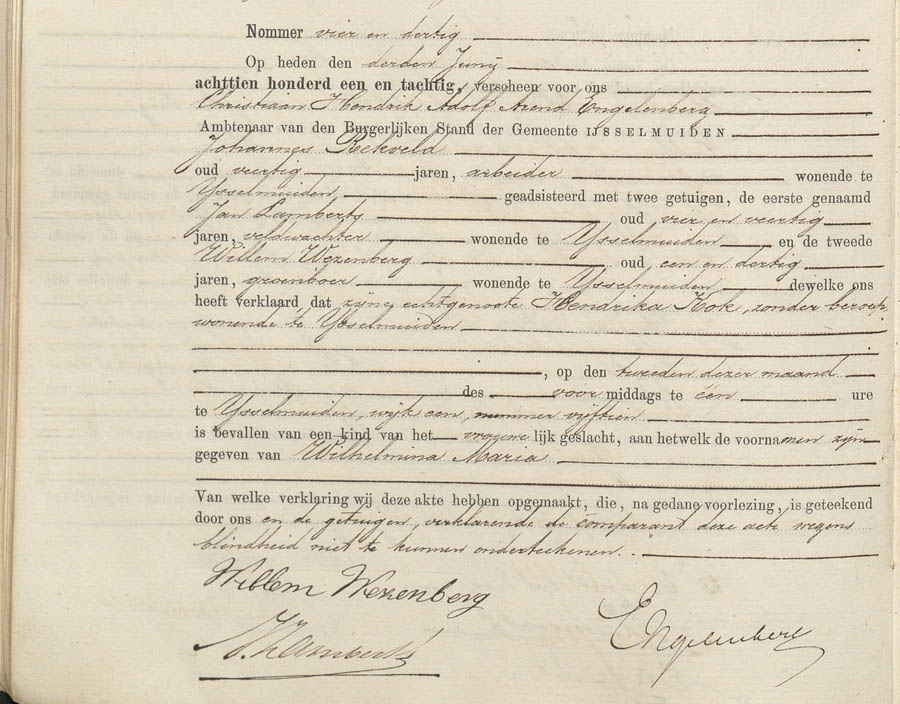 Nommer vier en dertig
Op heden den derden Junij
achttien honderd een en tachtig, verscheen voor ons
Christiaan Hendrik Adolf Arend Engelenberg
Ambtenaar van den Burgerlijken Stand der Gemeente IJSSELMUIDEN
Johannes Rekveld
oud veertig jaren, arbeider wonende te
Ysselmuiden geadsisteerd met twee getuigen, de eerste genaamd
Jan Lamberts oud vier en veertig
jaren, veldwachter wonende te Ysselmuiden en de tweede
Willem Wezenberg oud een en dertig
jaren, groenboer wonende te Ysselmuiden dewelke ons
heeft verklaard dat zijne echtgenoote Hendrika Kok, zonder beroep,
wonende te Ysselmuiden
, op den tweeden dezer maand
des voor middags te een ure
te Ysselmuiden, wijk een, nummer vijftien
is bevallen van een kind van het vrouwe lijk geslacht, aan hetwelk de voornamen zijn
gegeven van Wilhelmina Maria
Van welke verklaring wij deze akte hebben opgemaakt, die, na gedane voorlezing, is geteekend
door ons en de getuigen, verklarende de comparant deze acte wegens
blindheid niet te kunnen onderteekenen.
Willem Wezenberg
J. Lamberts
Engelenberg